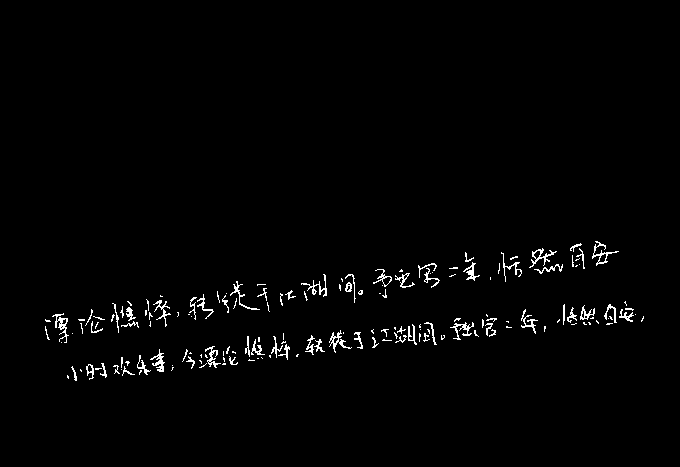 漂沦憔悴，转徙于江湖间。予出官二年，恬然自安
小时欢乐事，今漂沦憔悴，转徙于江湖间。予出官二年，恬然自安，